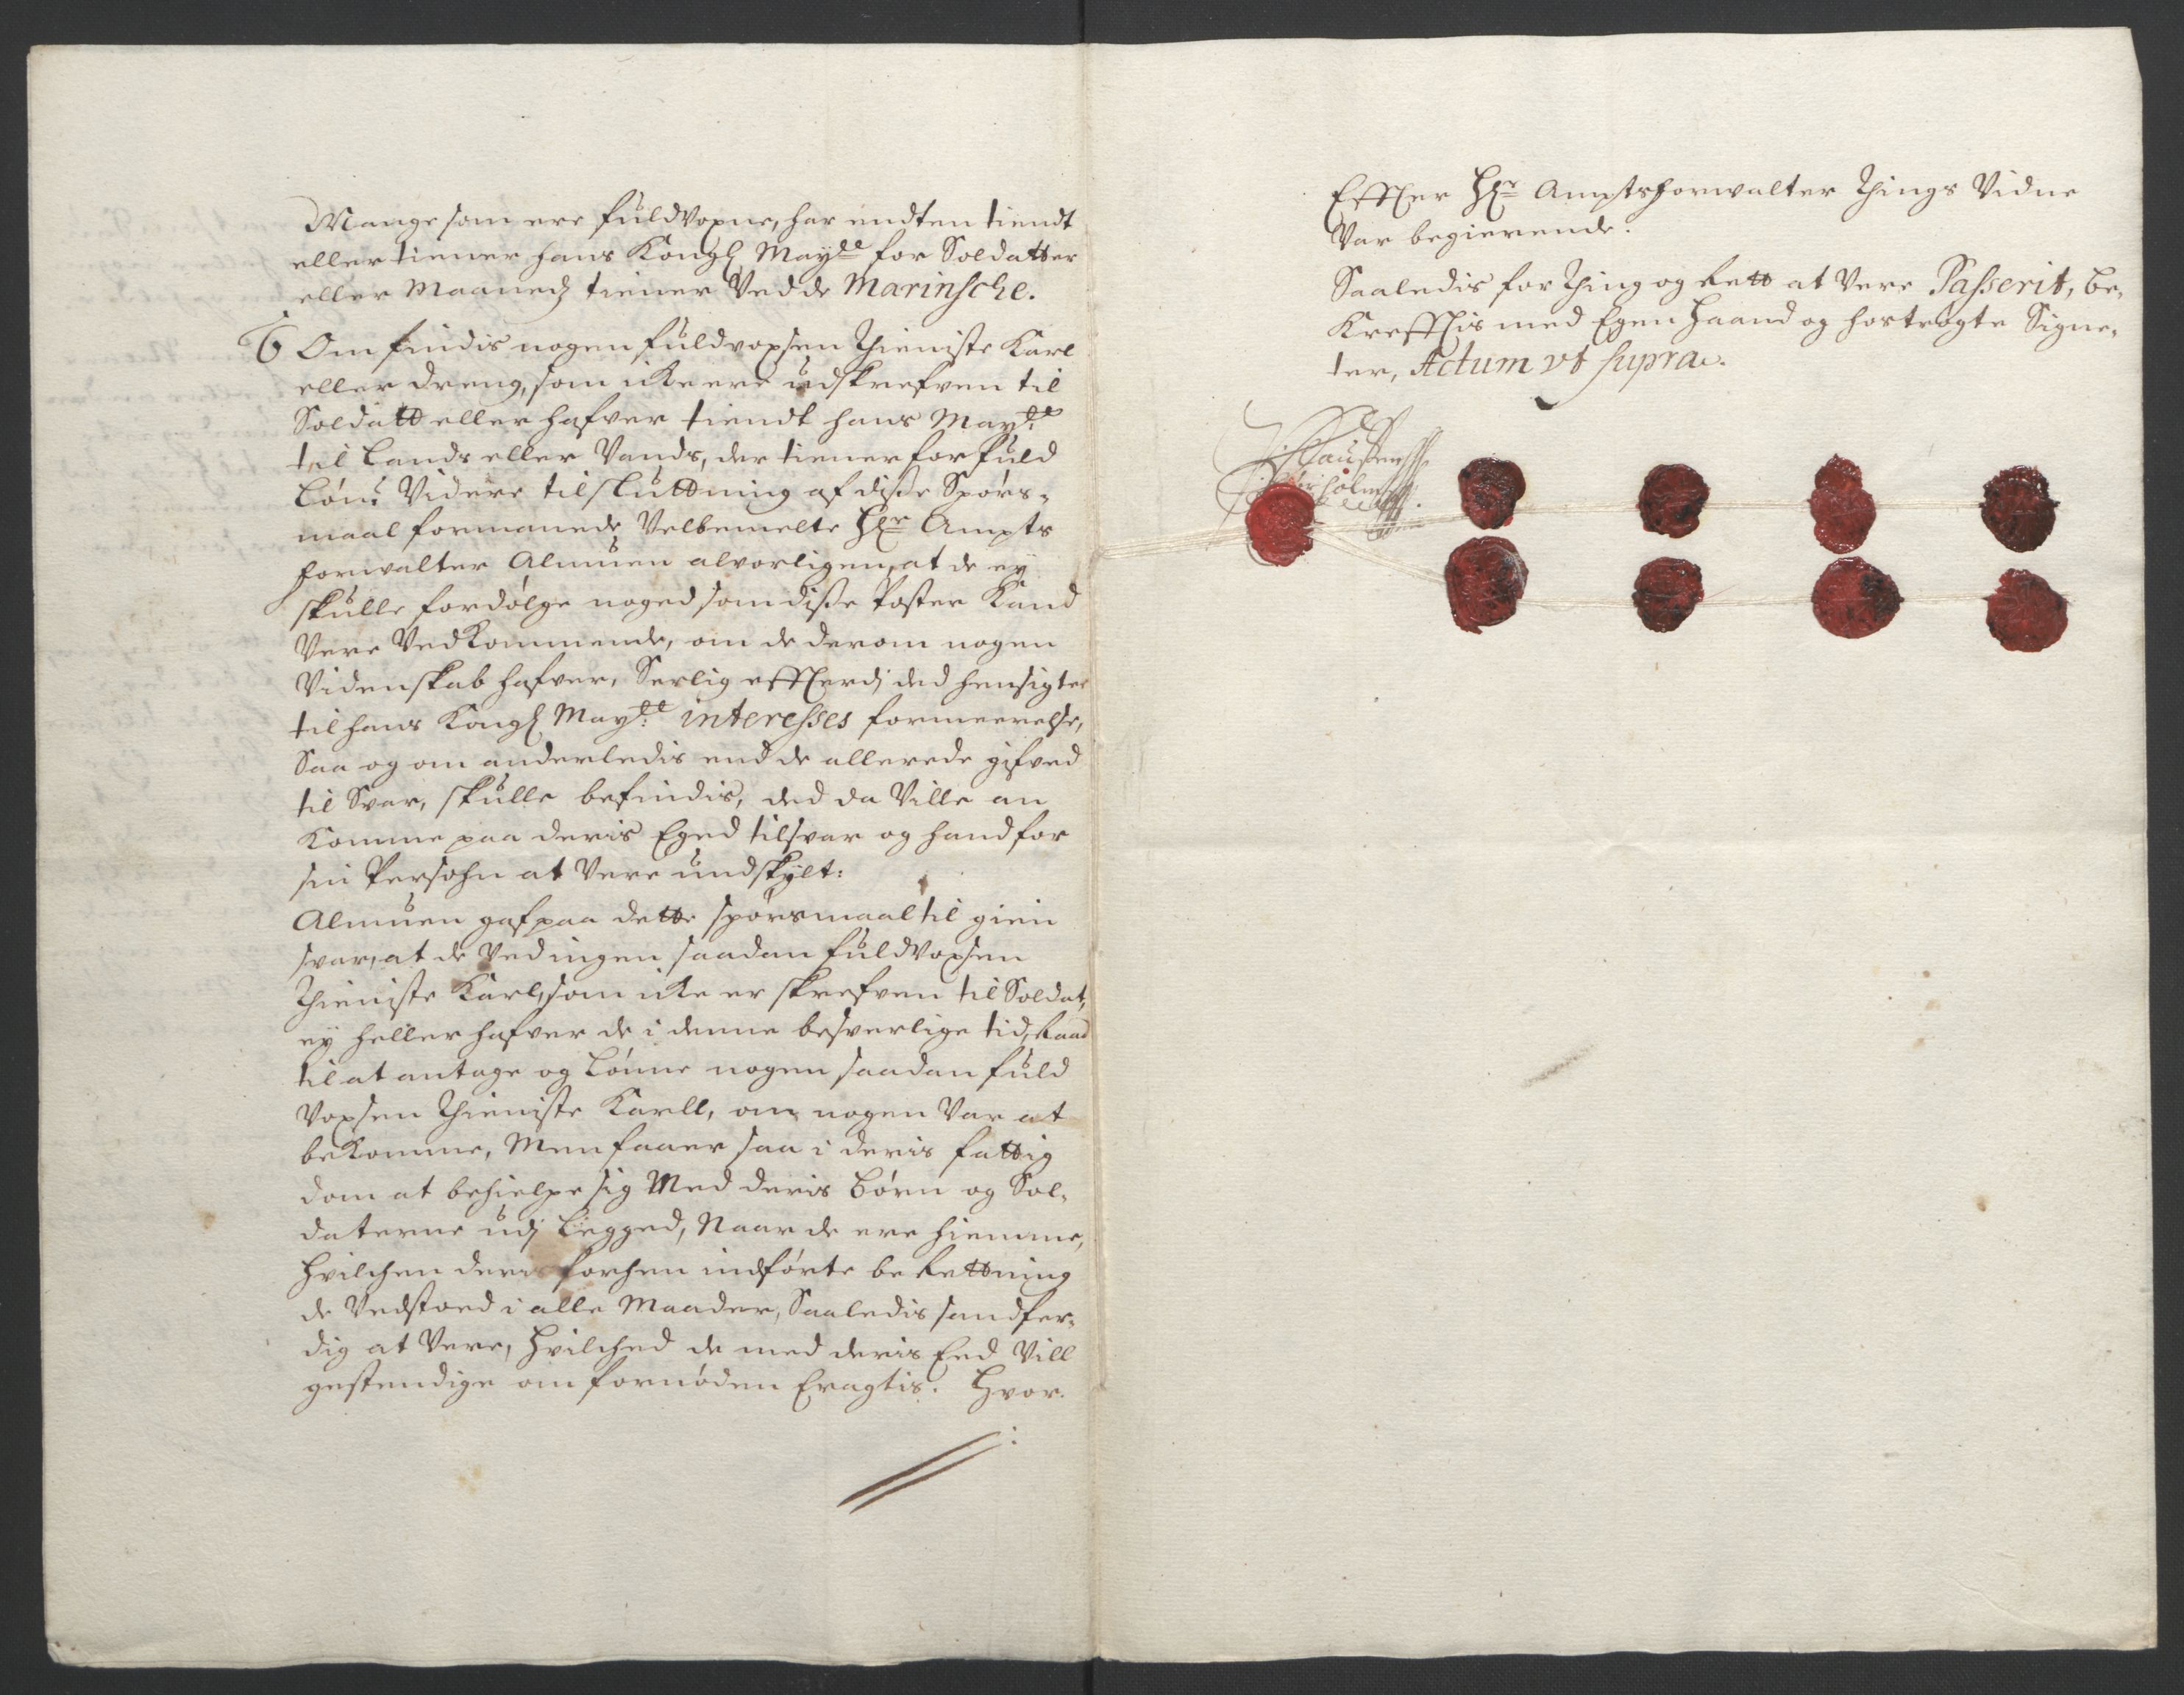 Mange som ere fuldVoxne, har endten tiendt
eller tiener hans Kongl Mayte for Soldatter
eller Maaned tiener Ved de Marinsche.
6 Om findis nogen fuldvoxsen Thieniste Karl
eller dreng, som icke ere udskrefven til
Soldatt eller hafver tiendt hans Mayte
til Lands eller Vands, der tiener for fuld
Løn? Videre til sluttning af disse Spørs-
maal formanede Velbemelte Hr Ampts
forwalter Almuen alvorligen, at de ey
skulle fordølge noged som disse Poster Kand
Vere Vedkommende, om de derom nogen
Videnskab hafver, Serlig effterdj ded hensigter
til hans Kongl Maytt interesses formeerelse,
Saa og om anderledis end de allerede gifved
til Svar, skulle befindis, ded da Ville an
Komme paa deris Eged tilsvar og hand for
sin Persohn at Vere undskylt:
Almuen gaf paa dette spørsmaal til gien
svar, at de Ved ingen saadan fuldVoxsen
Thieniste Karl, som icke er skrefven til Soldat,
ey heller hafver de i denne besverlige tid, Raad
til at antage og Lønne nogen saadan fuld
Voxsen Thieniste Karll, om nogen Var at
bekomme, Men faaer saa i deris fattig
dom at behielpe sig Med deris Børn og Sol-
daterne udj Legged, Naar de ere hiemme,
Hvilchen deris forhen indførte be Rettning
de Vedstoed i alle Maader, Saaledis sandfer-
dig at Vere, Hvilched de med deris Eed Vill
gestendige om fornøden Eragtis. Hvor-
Effter Hr Amptsforwalter Things Vidne
Var begierende.
Saaledis for Thing og Rett at Vere Passerit, be-
Krefftis med Egen Haand og hostrøgte Signe-
ter, Actum vt supra.